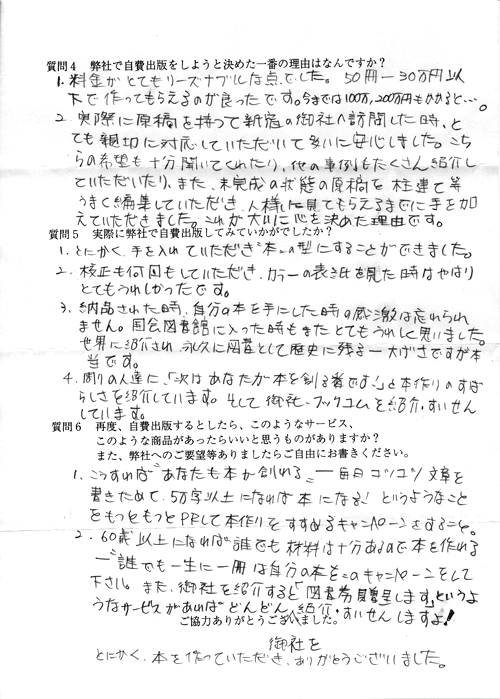 質問4 弊社で自費出版をしようと決めた一番の理由はなんですか?
1. 料金がとてもリーズナブルな点でした。50冊−30万円以
下で作ってもらえるのが良ったです。今までは100万,200万円もかかると…。
2. 実際に原稿を持って新宿の御社へ訪問した時、と
ても親切に対応していただいて多いに安心しました。こち
らの希望も十分聞いてくれたり、他の事例もたくさん紹介し
ていただいたり、また、未完成の状態の原稿を柱建て等
うまく編集していただき、人様に見てもらえるまでに手を加
えていただきました。これが大いに心を決めた理由です。
質問5 実際に弊社で自費出版してみていかがでしたか?
1. とにかく、手を入れていただき"本"の型にすることができました。
2. 校正も何回もしていただき、カラーの表紙を見た時はやはり
とてもうれしかったです。
3. 納品された時、自分の本を手にした時の感激は忘れられ
ません。国会図書館に入った時もまたとてもうれしく思いました。
世界に紹介され、永久に図書として歴史に残る−大げさですが本
当です。
4. 周りの人達に、「次はあなたが本を創る番です!」と本作りのすば
らしさを紹介しています。そして御社、ブックコムを紹介・すいせん
しています。
質問6 再度、自費出版するとしたら、このようなサービス、
このような商品があったらいいと思うものがありますか?
また、弊社へのご要望等ありましたらご自由にお書きください。
1. こうすれば"あなたも本が創れる"−毎日コツコツ文章を
書きためて、5万字以上になれば本になる!というようなこと
をもっともっとPRして本作りをすすめるキャンペーンをすること。
2. 60歳以上になれば"誰でも材料は十分あるので本を作れる
−"誰でも一生に一冊は自分の本を"のキャンペーンをして
下さい。また、御社を紹介すると「図書券贈呈します」というよ
うなサービスがあればどんどん紹介・すいせんしますよ!
ご協力ありがとうございました。
御社を
とにかく、本を作っていただき、ありがとうございました。